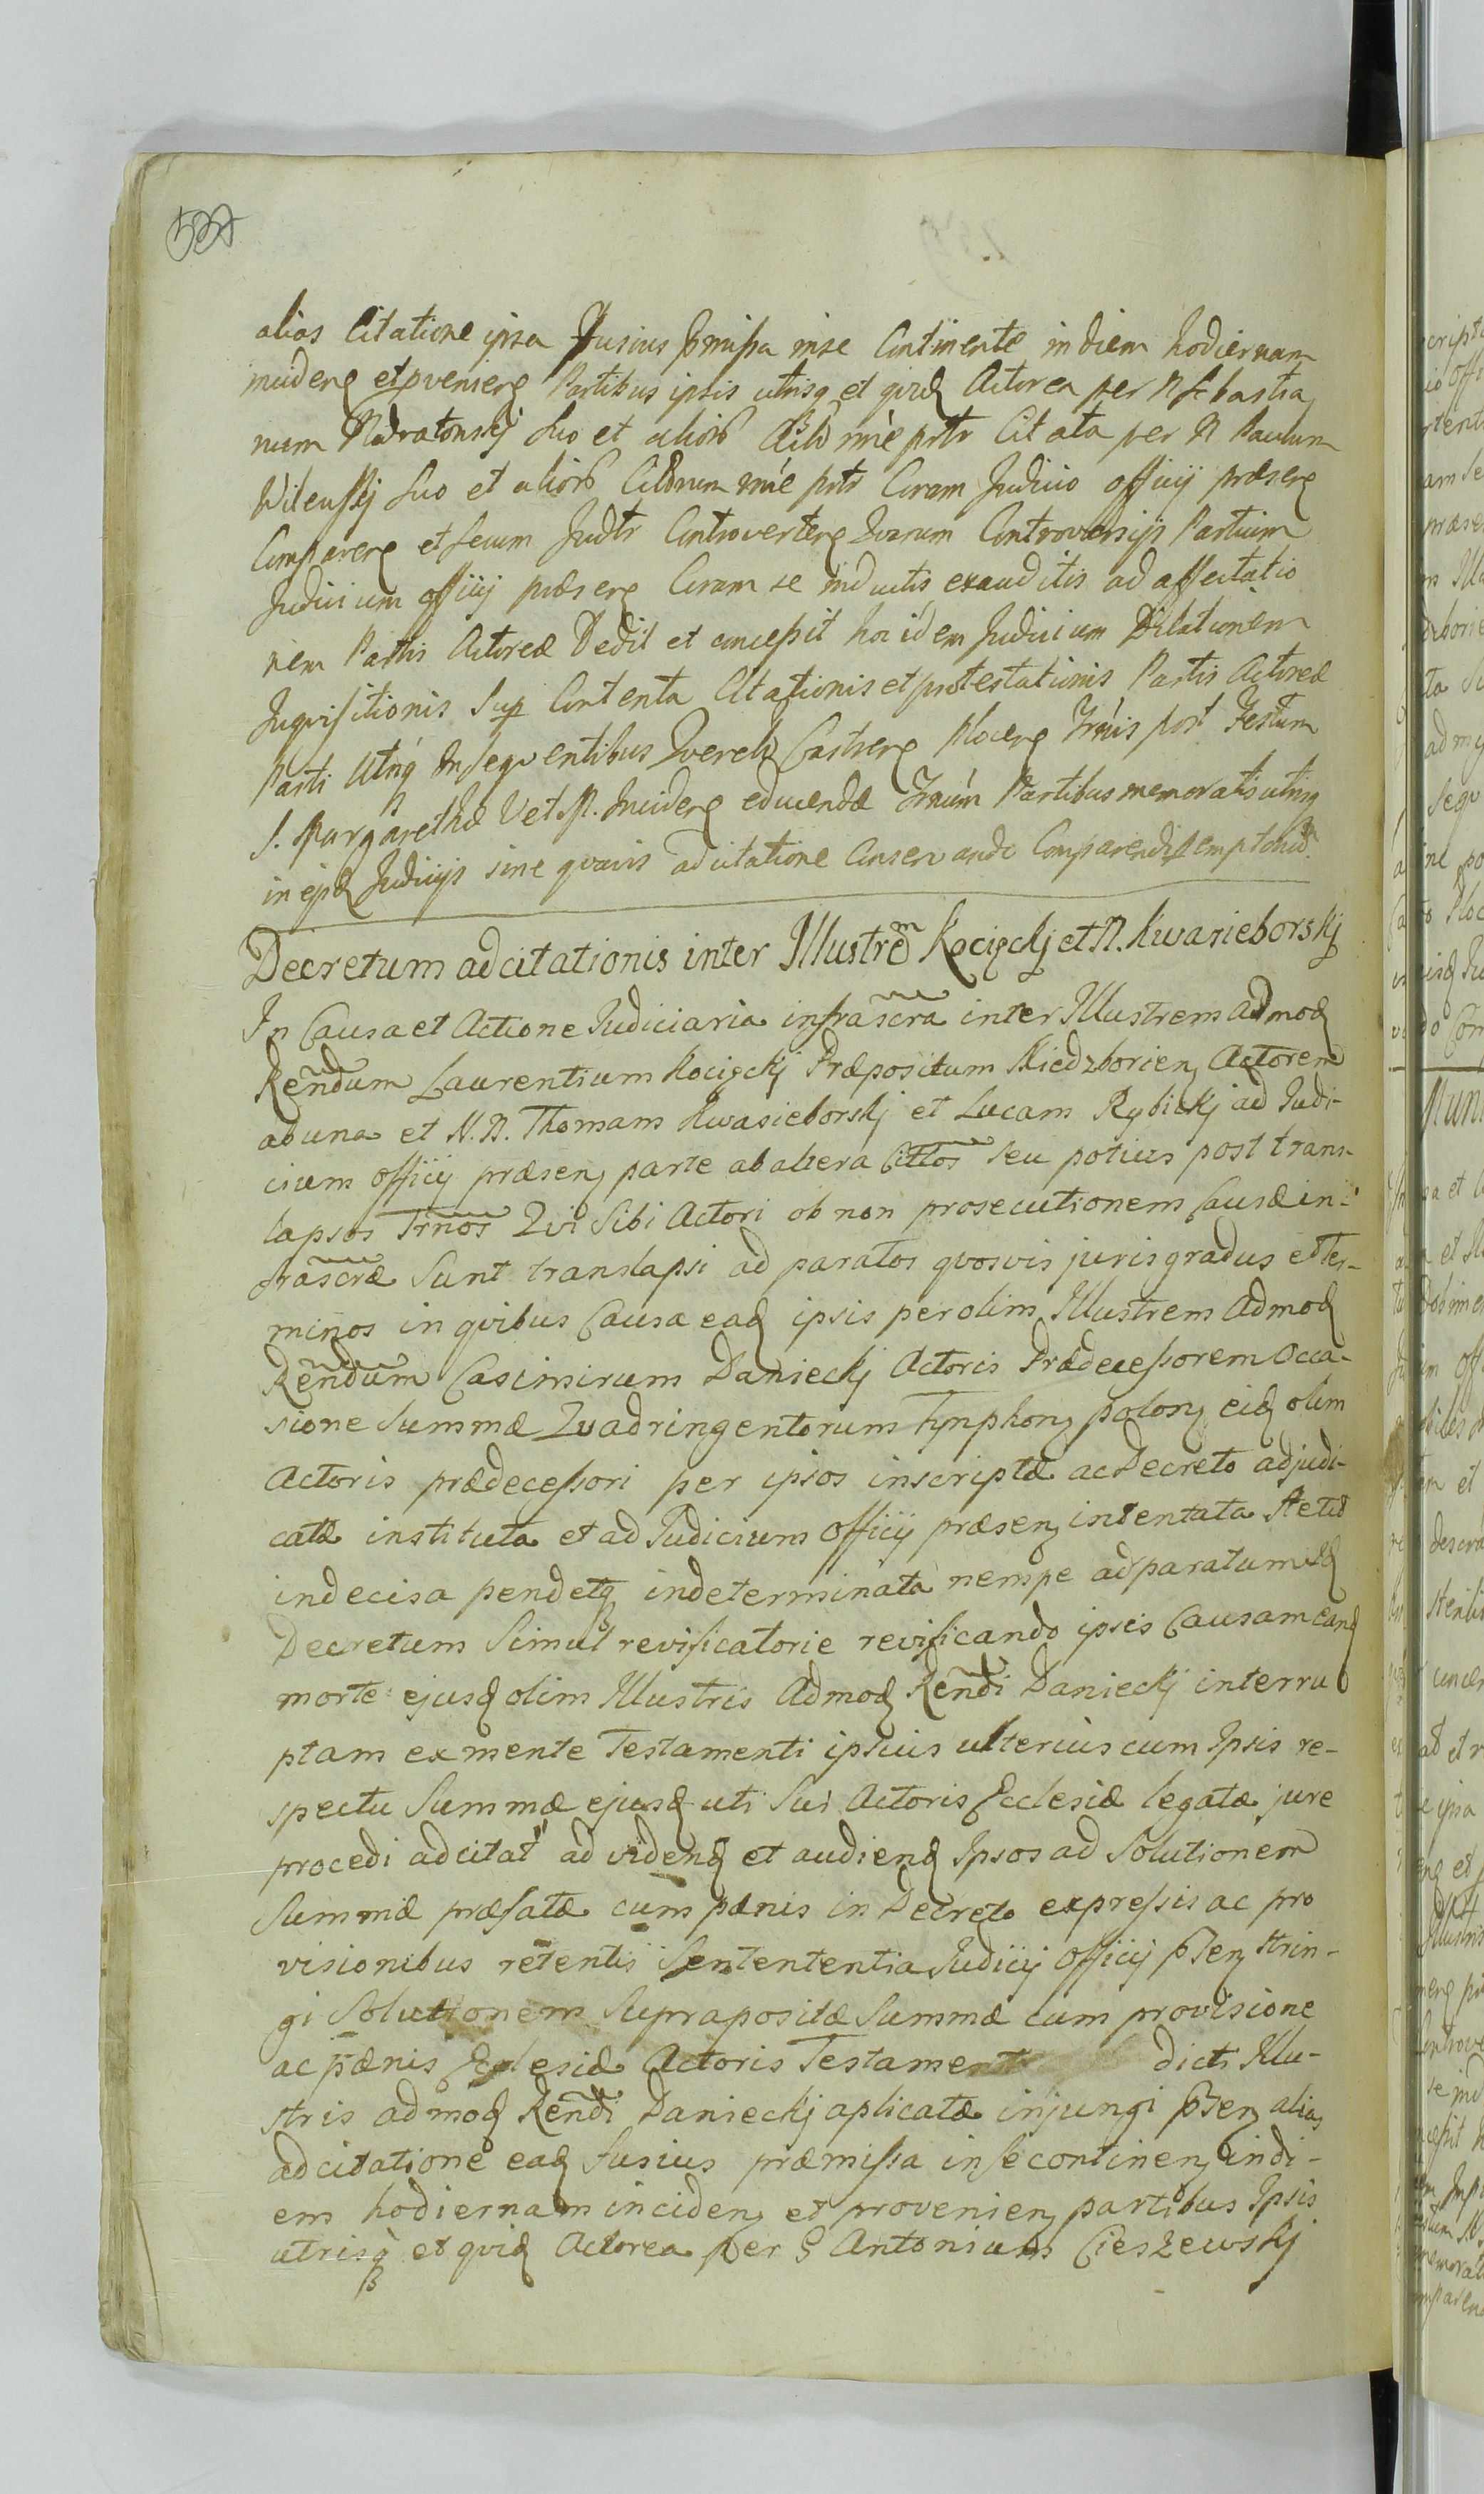 537
alias Citatione ipsa fusius pmissa in se Continente in diem hodiernam
inciden et pvenien Partibus ipsis utrisq et qvid Actorea per N Sebastia
num suo et alior noie prtr Citata per N Paulum
Wilenskj suo et alior Citorum noie prtr Coram Judicio officij præsen
Comparen et secum Judtr Controverten Qvarum Controversijs Partium
Judicium officij præsen Coram se inductis exauditis ad affectatio
nem Partis Actoreæ Dedit et concessit hoc idem Judicium Dilationem
Inqvisitionis Sup Contenta Citationis et protestationis Partis Actoreæ
Parti Utriq Insequentibus Qverel Castren Plocen Trnis post Festum
S. Margarethæ V et M. Inciden educendæ Trnum Partibus memoratis utrisq
in ejsd Judicijs sine qvavis adcitatione Conservando Comparendi pemptorium
Decretum adcitationis inter Illustrem Kocięckj et N. Kwasieborskj
In Causa et Actione Judiciaria infrascra inter Illustrem admod
Rendum Laurentium Kocięckj Præpositum Miedzborien Actorem
ab una et N. N. Thomam Kwasieborskj et Lucam Rybickj ad Judi-
cium officij præsen parte ab altera Cittos seu potius post trans-
lapsos Trnos Qvi Sibi Actori ob non prosecutionem Causæ in-
frascræ sunt translapsi ad paratos qvosvis juris gradus et ter-
minos in qvibus Causa ead ipsis per olim Illustrem Admod
Rendum Casimirum Danieckj Actoris Prædecessorem Occa-
sione Summæ Qvadringentorum Tynphon polon eid olim
Actoris prædecessori per ipsos inscriptæ ac Decreto adjudi-
catæ instituta et ad Judicium Officij præsen intentata stetit
indecisa pendetq indeterminata nempe ad paratum
Decretum Simul revificatorie revificando ipsis Causam eand
morte ejusd olim Illustris Admod Rendi Danieckj interru
ptam ex mente Testamenti ipsius ulterius cum Ipsis re-
spectu Summæ ejusd uti Sui Actoris Ecclesiæ legatæ jure
procedi adcitat ad videnđ et audienđ Ipsos ad Solutionem
Summæ præfatæ cum pænis in Decreto expressis ac pro
visionibus retentis Sentententia Judicij Officij pSen strin-
gi Solutionem Supra positæ Summæ cum provisione
ac pænis Ecclesiæ Actoris Testament dicti Illu-
stris admod Rendi Danieckj aplicatæ injungi pSen alias
adcitatione ead fusius præmissa in se continen in di-
em hodiernam inciden et provenien partibus Ipsis
utrisq et qvid Actorea per G Antonium Cieszewskj